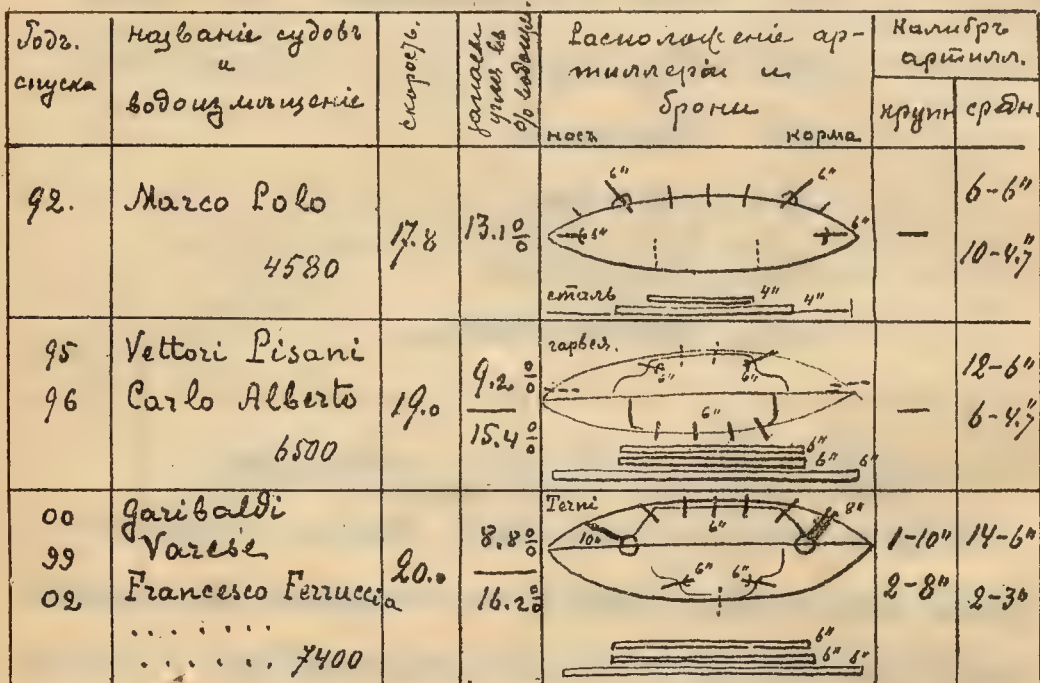 Годъ. спуска
названіе судовъ
и
водоизмѣщеніе
скорость.
запасы угля въ % водоизм.
Расположеніе ар-
тиллеріи и
брони
носъ корма
Калибръ
артилл.
крупн средн.
92.
Marco Polo
4580
17.8
13.1%
6" 6"
6" 6"
сталь 4" 4"
—
6-6"
10-4.7"
95
96
Vettori Pisani
Carlo Alberto
6500
19.0
9.2%
15.4%
гарвея.
6" 6"
6"
6"
6" 6"
—
12-6"
6-4.7"
00
99
02
Garibaldi
Varese
Francesco Ferruccia
7400
20.0
8.8%
16.2%
Terni 8"
10" 6"
6" 6"
6"
6" 6"
1-10"
2-8"
14-6"
2-3"